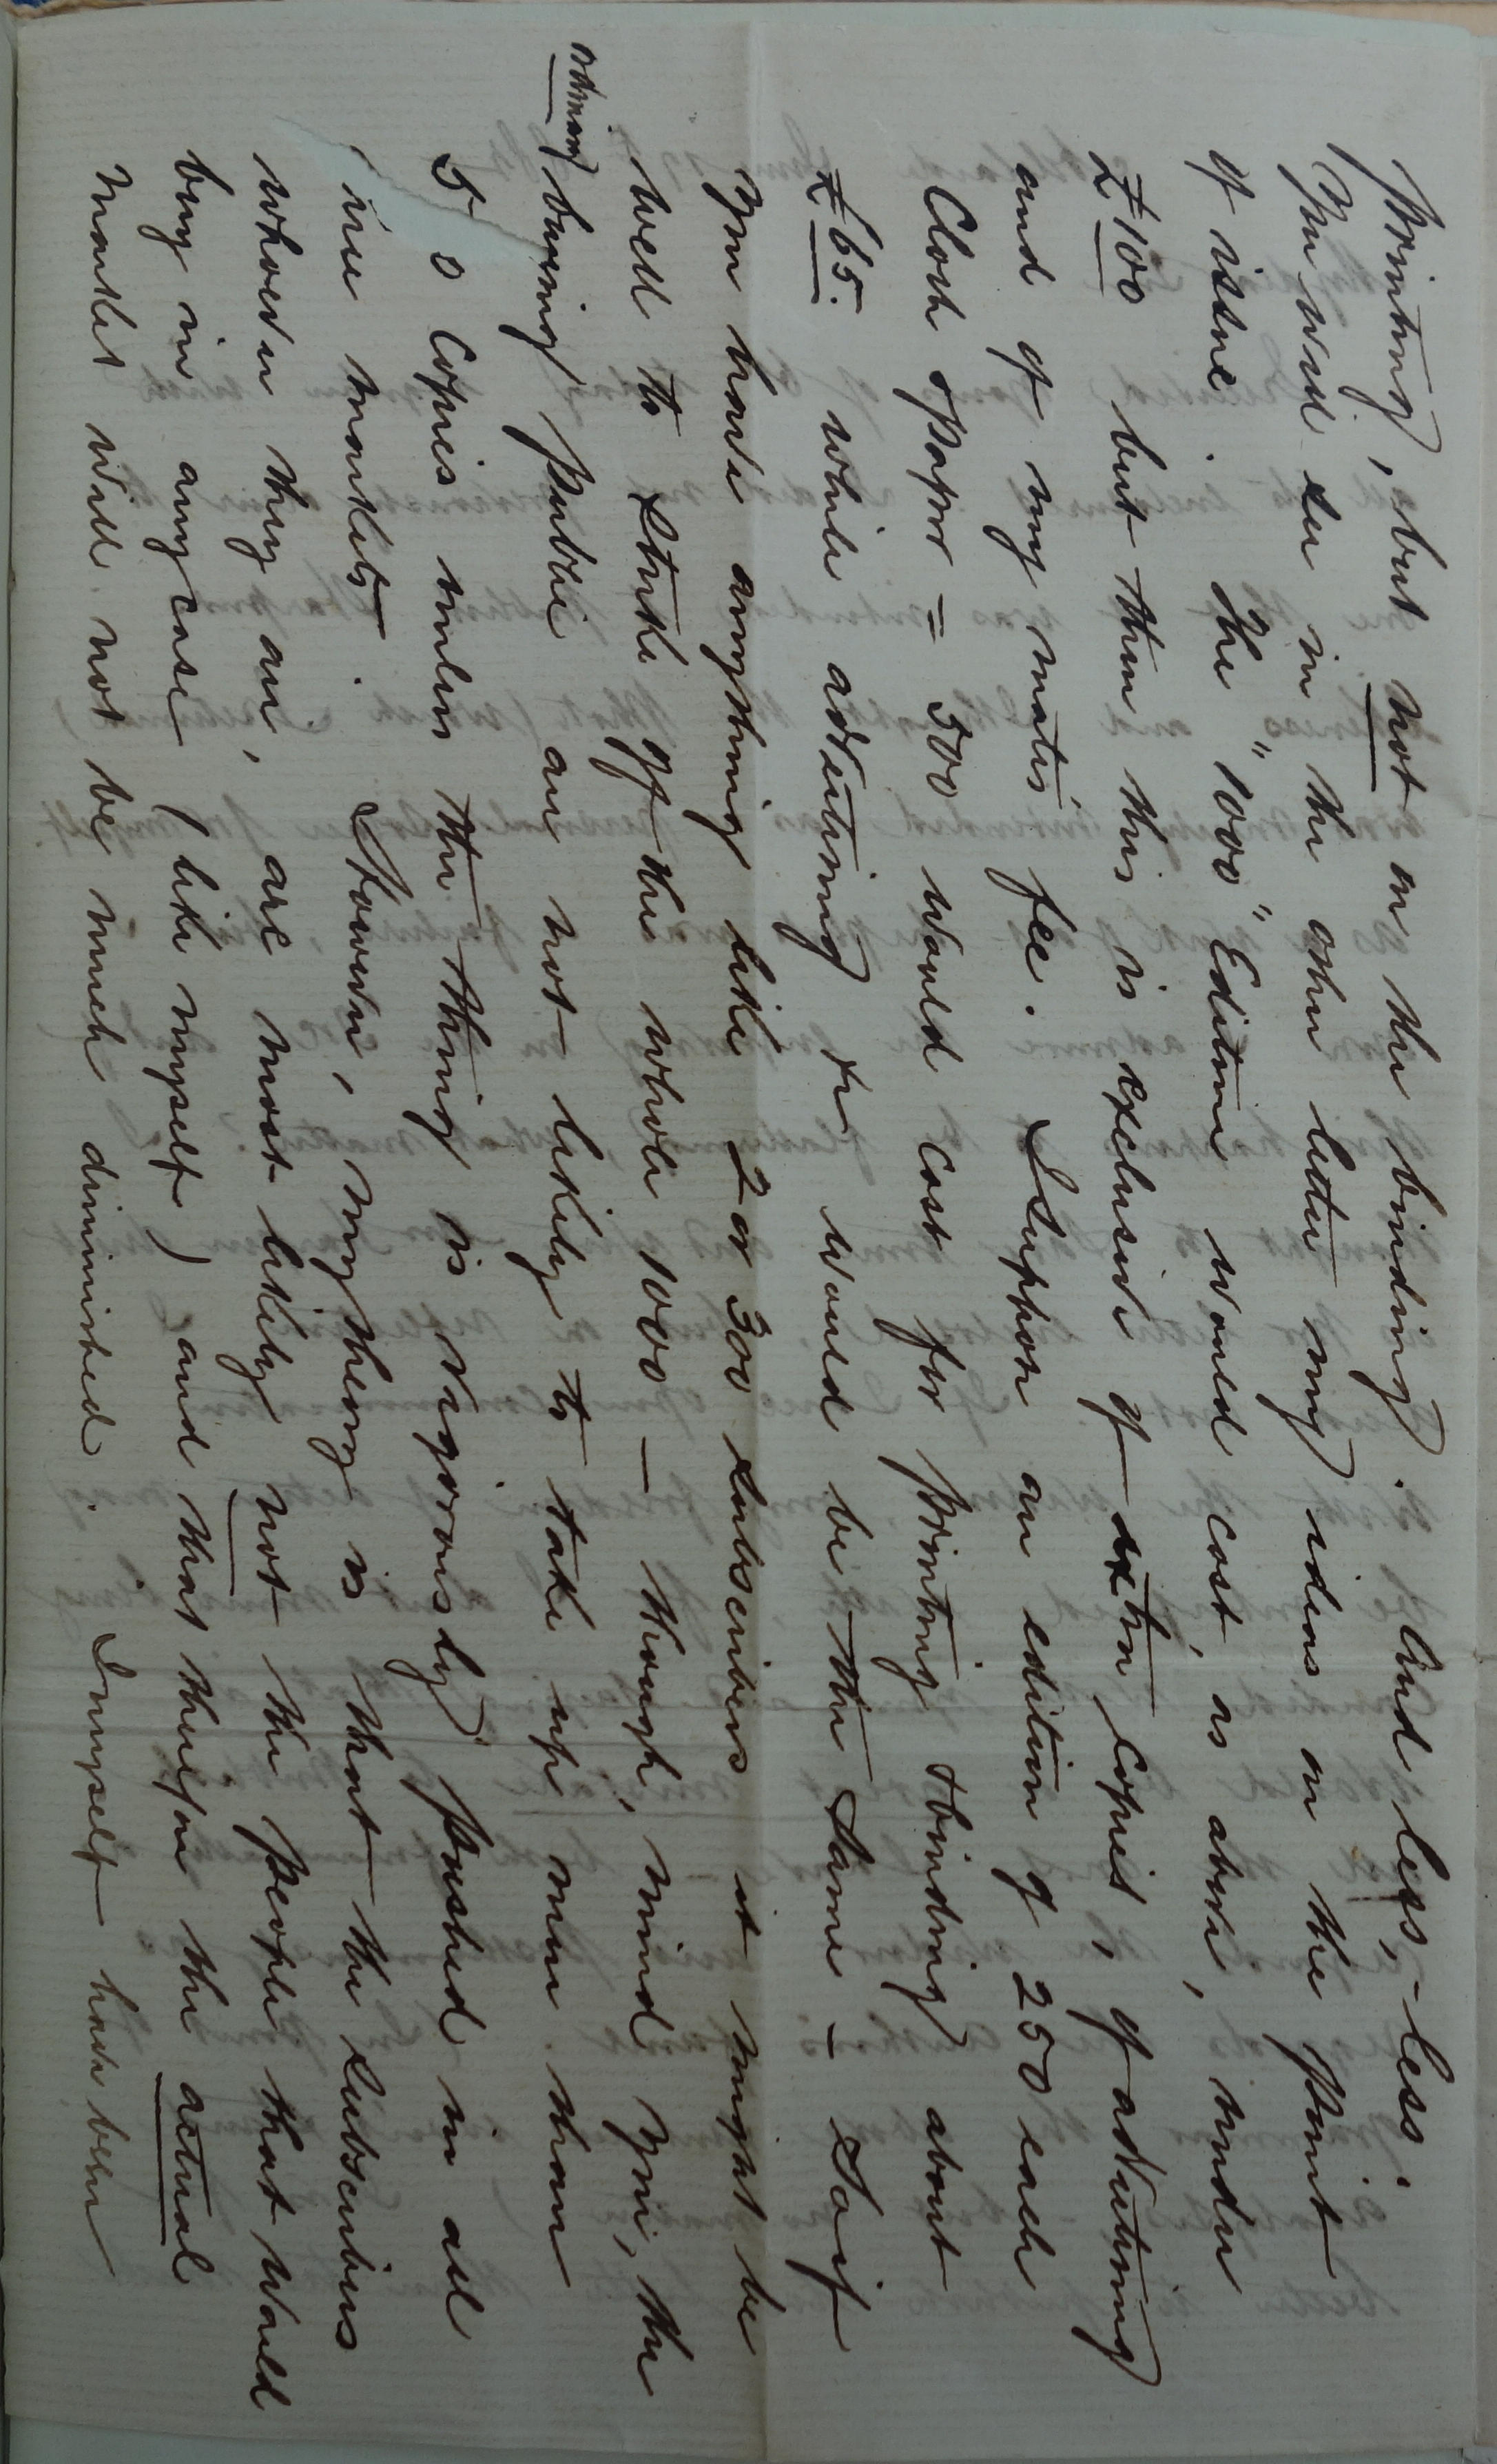 printing, but not on the binding. And less, - less.
You will see in the other letter my ideas on the point
of issue. The "1000" Edition would cost, as above, under
£100 but then this is exclusive of extra copies, of advertising
and of my mate's fee. Suppose an edition of 250 each
Cloth & paper = 500 would cost for printing & binding about
£65. while advertising &c would be the same - So if
you have anything like 2 or 300 subscribers it might be
well to strike off the whole 1000 - though, mind you, the
ordinary
buying public are not likely to take up more than
50 copies unless the thing is vigorously pushed in all
the markets. However, my theory is that the subscribers
whoever they are, are most likely not the people that would
buy in any case (like myself) and that therefore the actual
market will not be much diminished. I myself have been